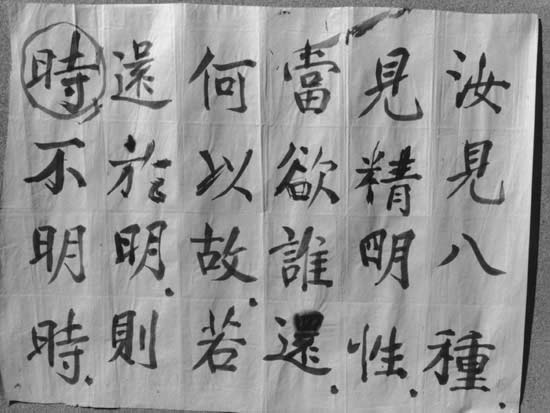 汝見八種.
見精明性.
當欲誰還.
何以故.若
還於明.則
時不明時.